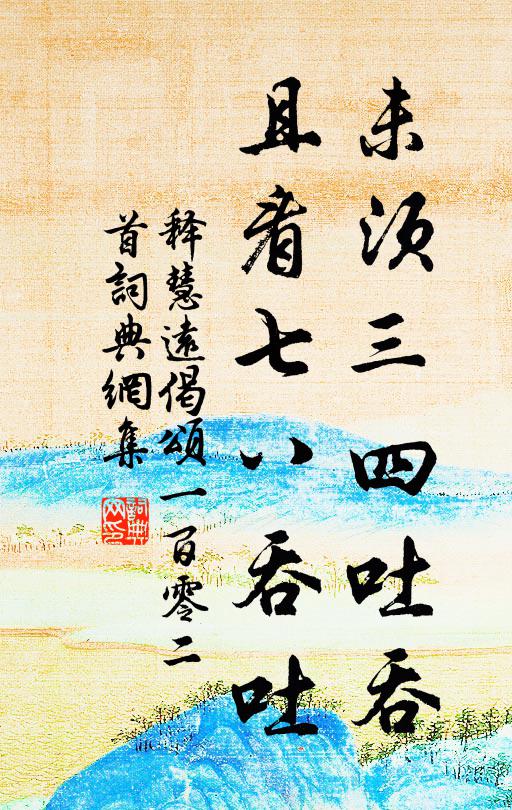 未須三四吐吞
且看七八吞吐
释慧遠偈頌一百零二
首詞典網集
詞典网印